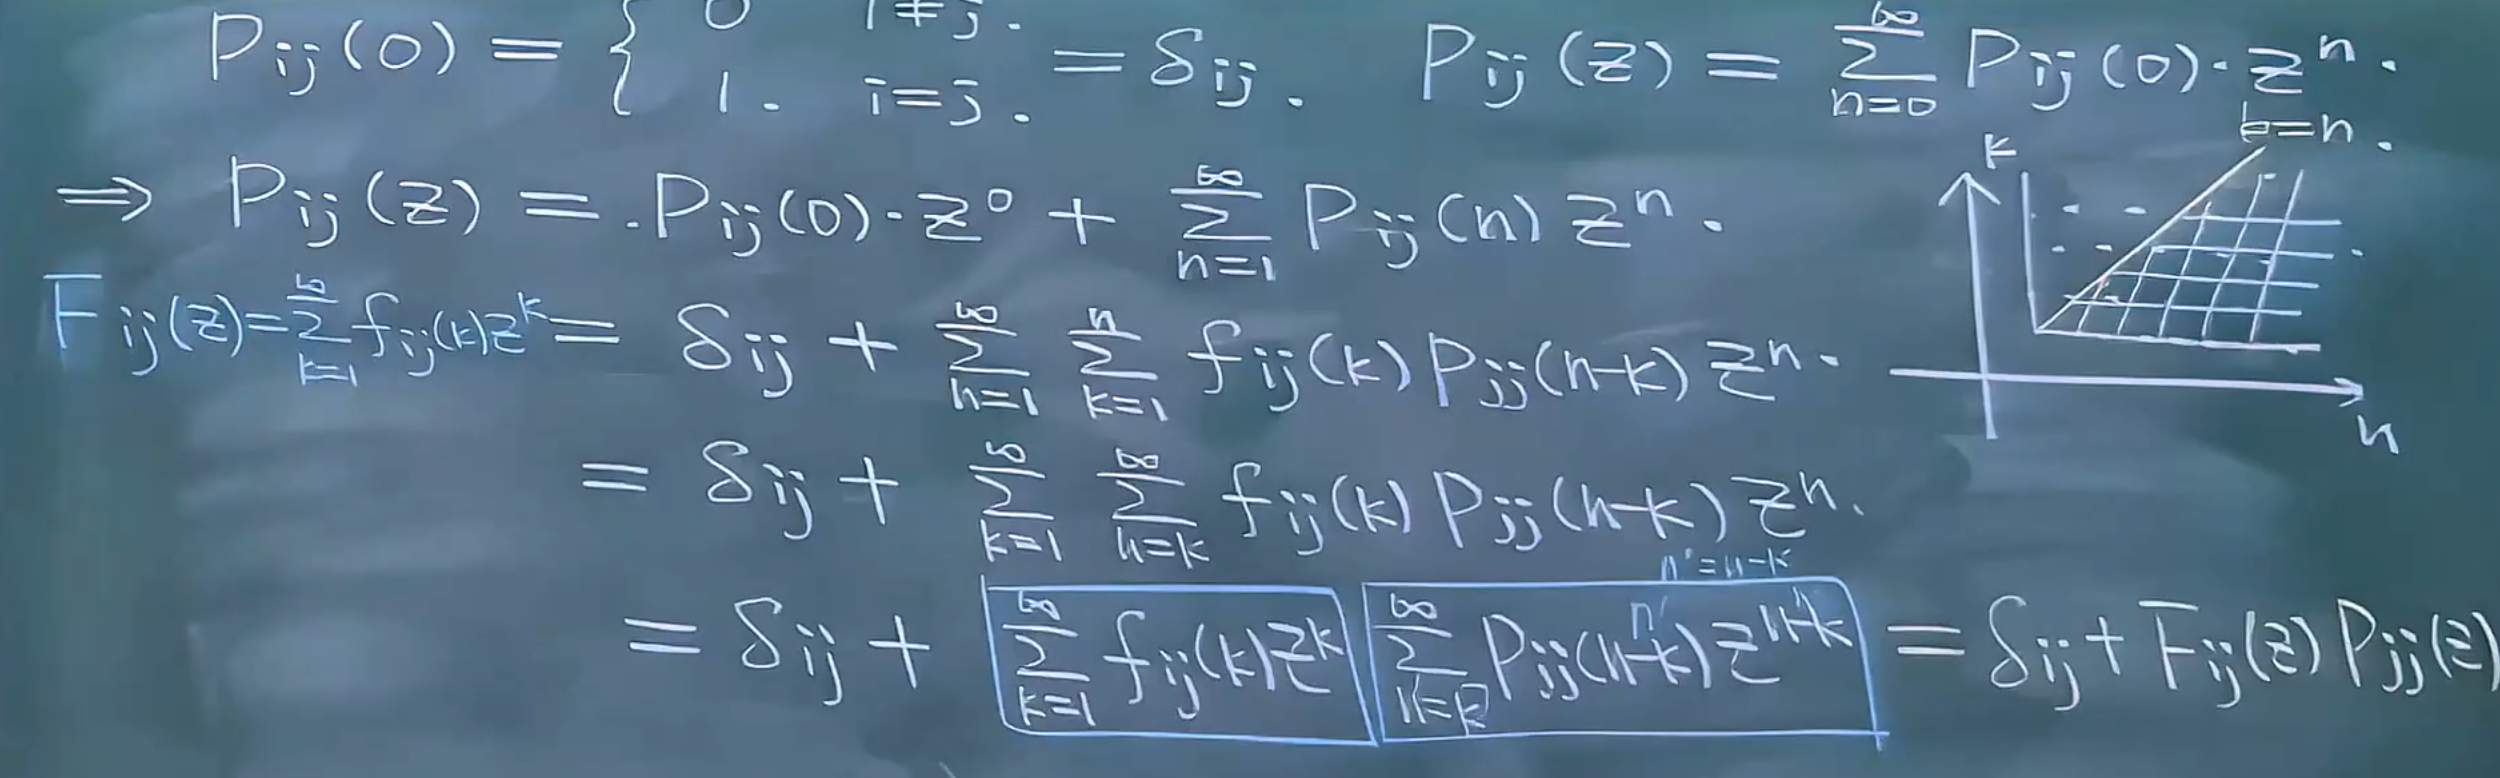 P_{ij}(0) = { 0 i≠j. 1. i=j. = δ_{ij}. P_{ij}(z) = \sum_{n=0}^{∞} P_{ij}(0)·z^n.
⇒ P_{ij}(z) = .P_{ij}(0)·z^0 + \sum_{n=1}^{∞} P_{ij}(n) z^n.
k=n.
k
n
F_{ij}(z) = \sum_{k=1}^{∞} f_{ij}(k) z^k
= δ_{ij} + \sum_{n=1}^{∞} \sum_{k=1}^{n} f_{ij}(k) P_{jj}(n-k) z^n.
= δ_{ij} + \sum_{k=1}^{∞} \sum_{n=k}^{∞} f_{ij}(k) P_{jj}(n-k) z^n.
n'=n-k
= δ_{ij} + \sum_{k=1}^{∞} f_{ij}(k) z^k \sum^{∞} P_{jj}(n-k) z^{n-k} = δ_{ij} + F_{ij}(z) P_{jj}(z)
n'